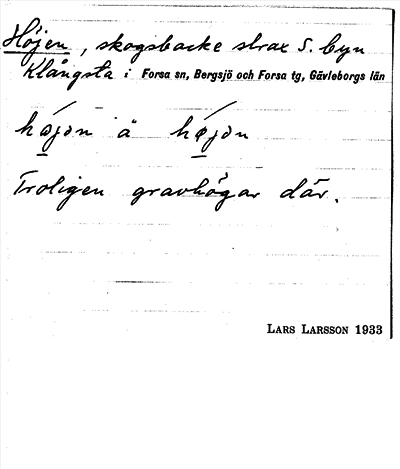 Höjen, skogsbacke strax S. byn
Klångsta i Forsa sn, Bergsjö och Forsa tg, Gävleborgs län
höjən ä højən
Troligen gravhögar där.
LARS LARSSON 1933